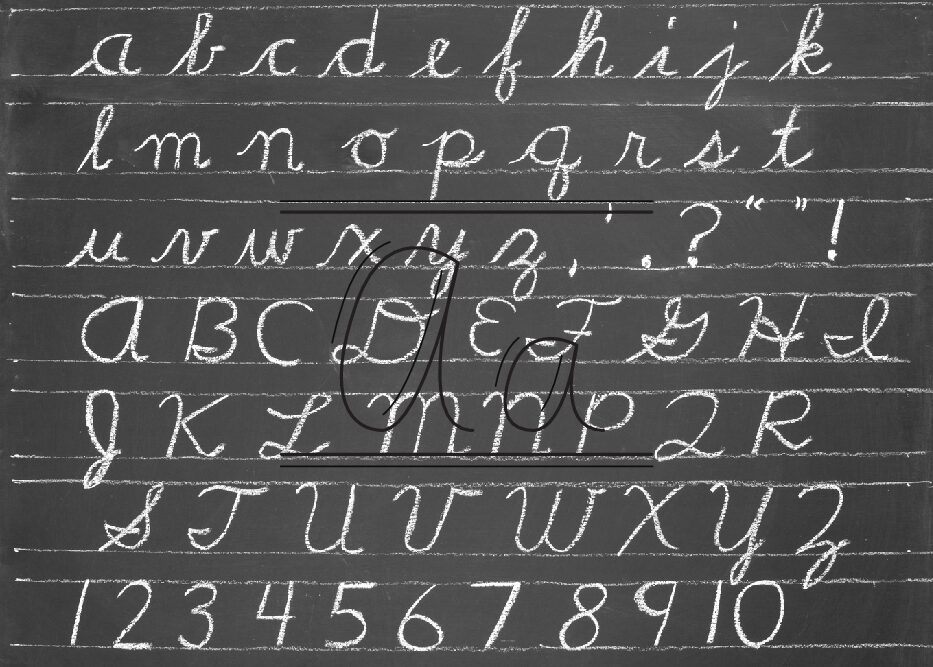 a b c d e f h i j k
l m n o p q r s t
u v w x y z , ' . ? “ ” !
A B C D E F G H I
J K L M N P Q R
S T U V W X Y Z
1 2 3 4 5 6 7 8 9 10
A a